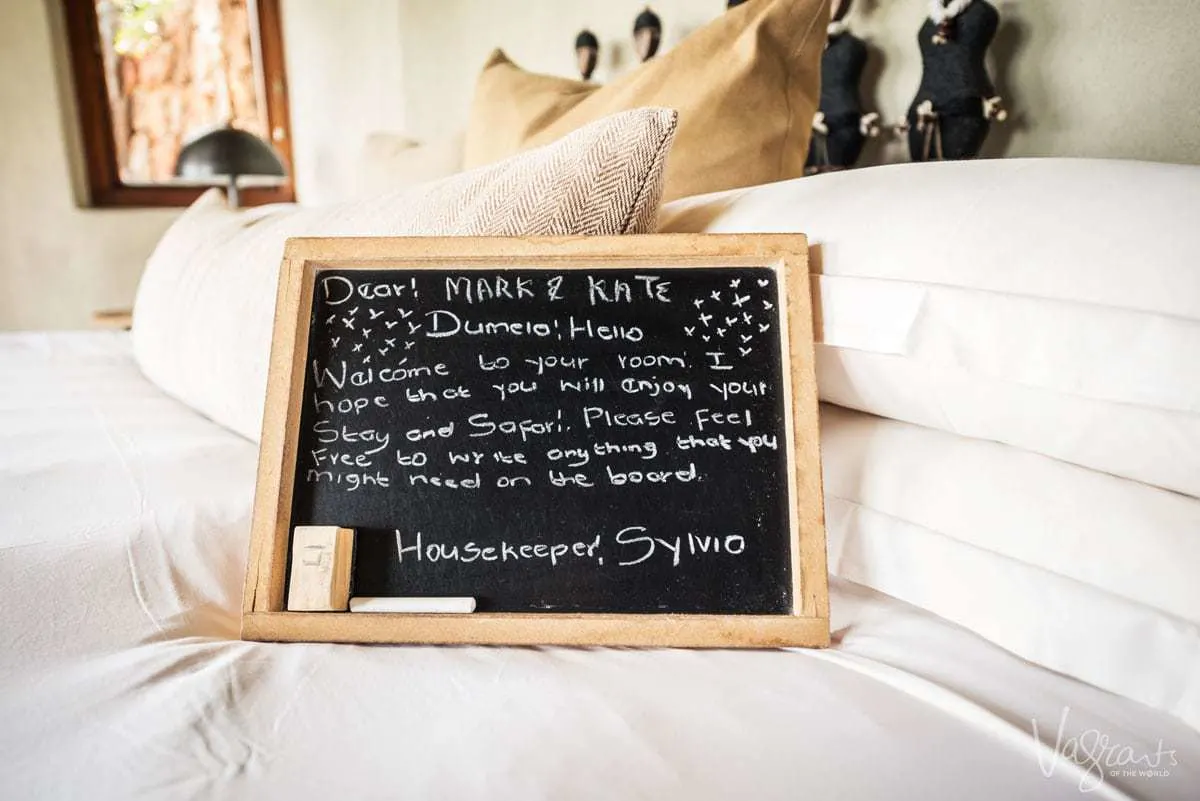 Dear! MARK & KATE
Dumelo! Hello
Welcome to your room. I
hope that you will enjoy your
Stay and Safari! Please feel
Free to write anything that you
might need on the board.
Housekeeper! Sylvio
Vagrants
OF THE WORLD